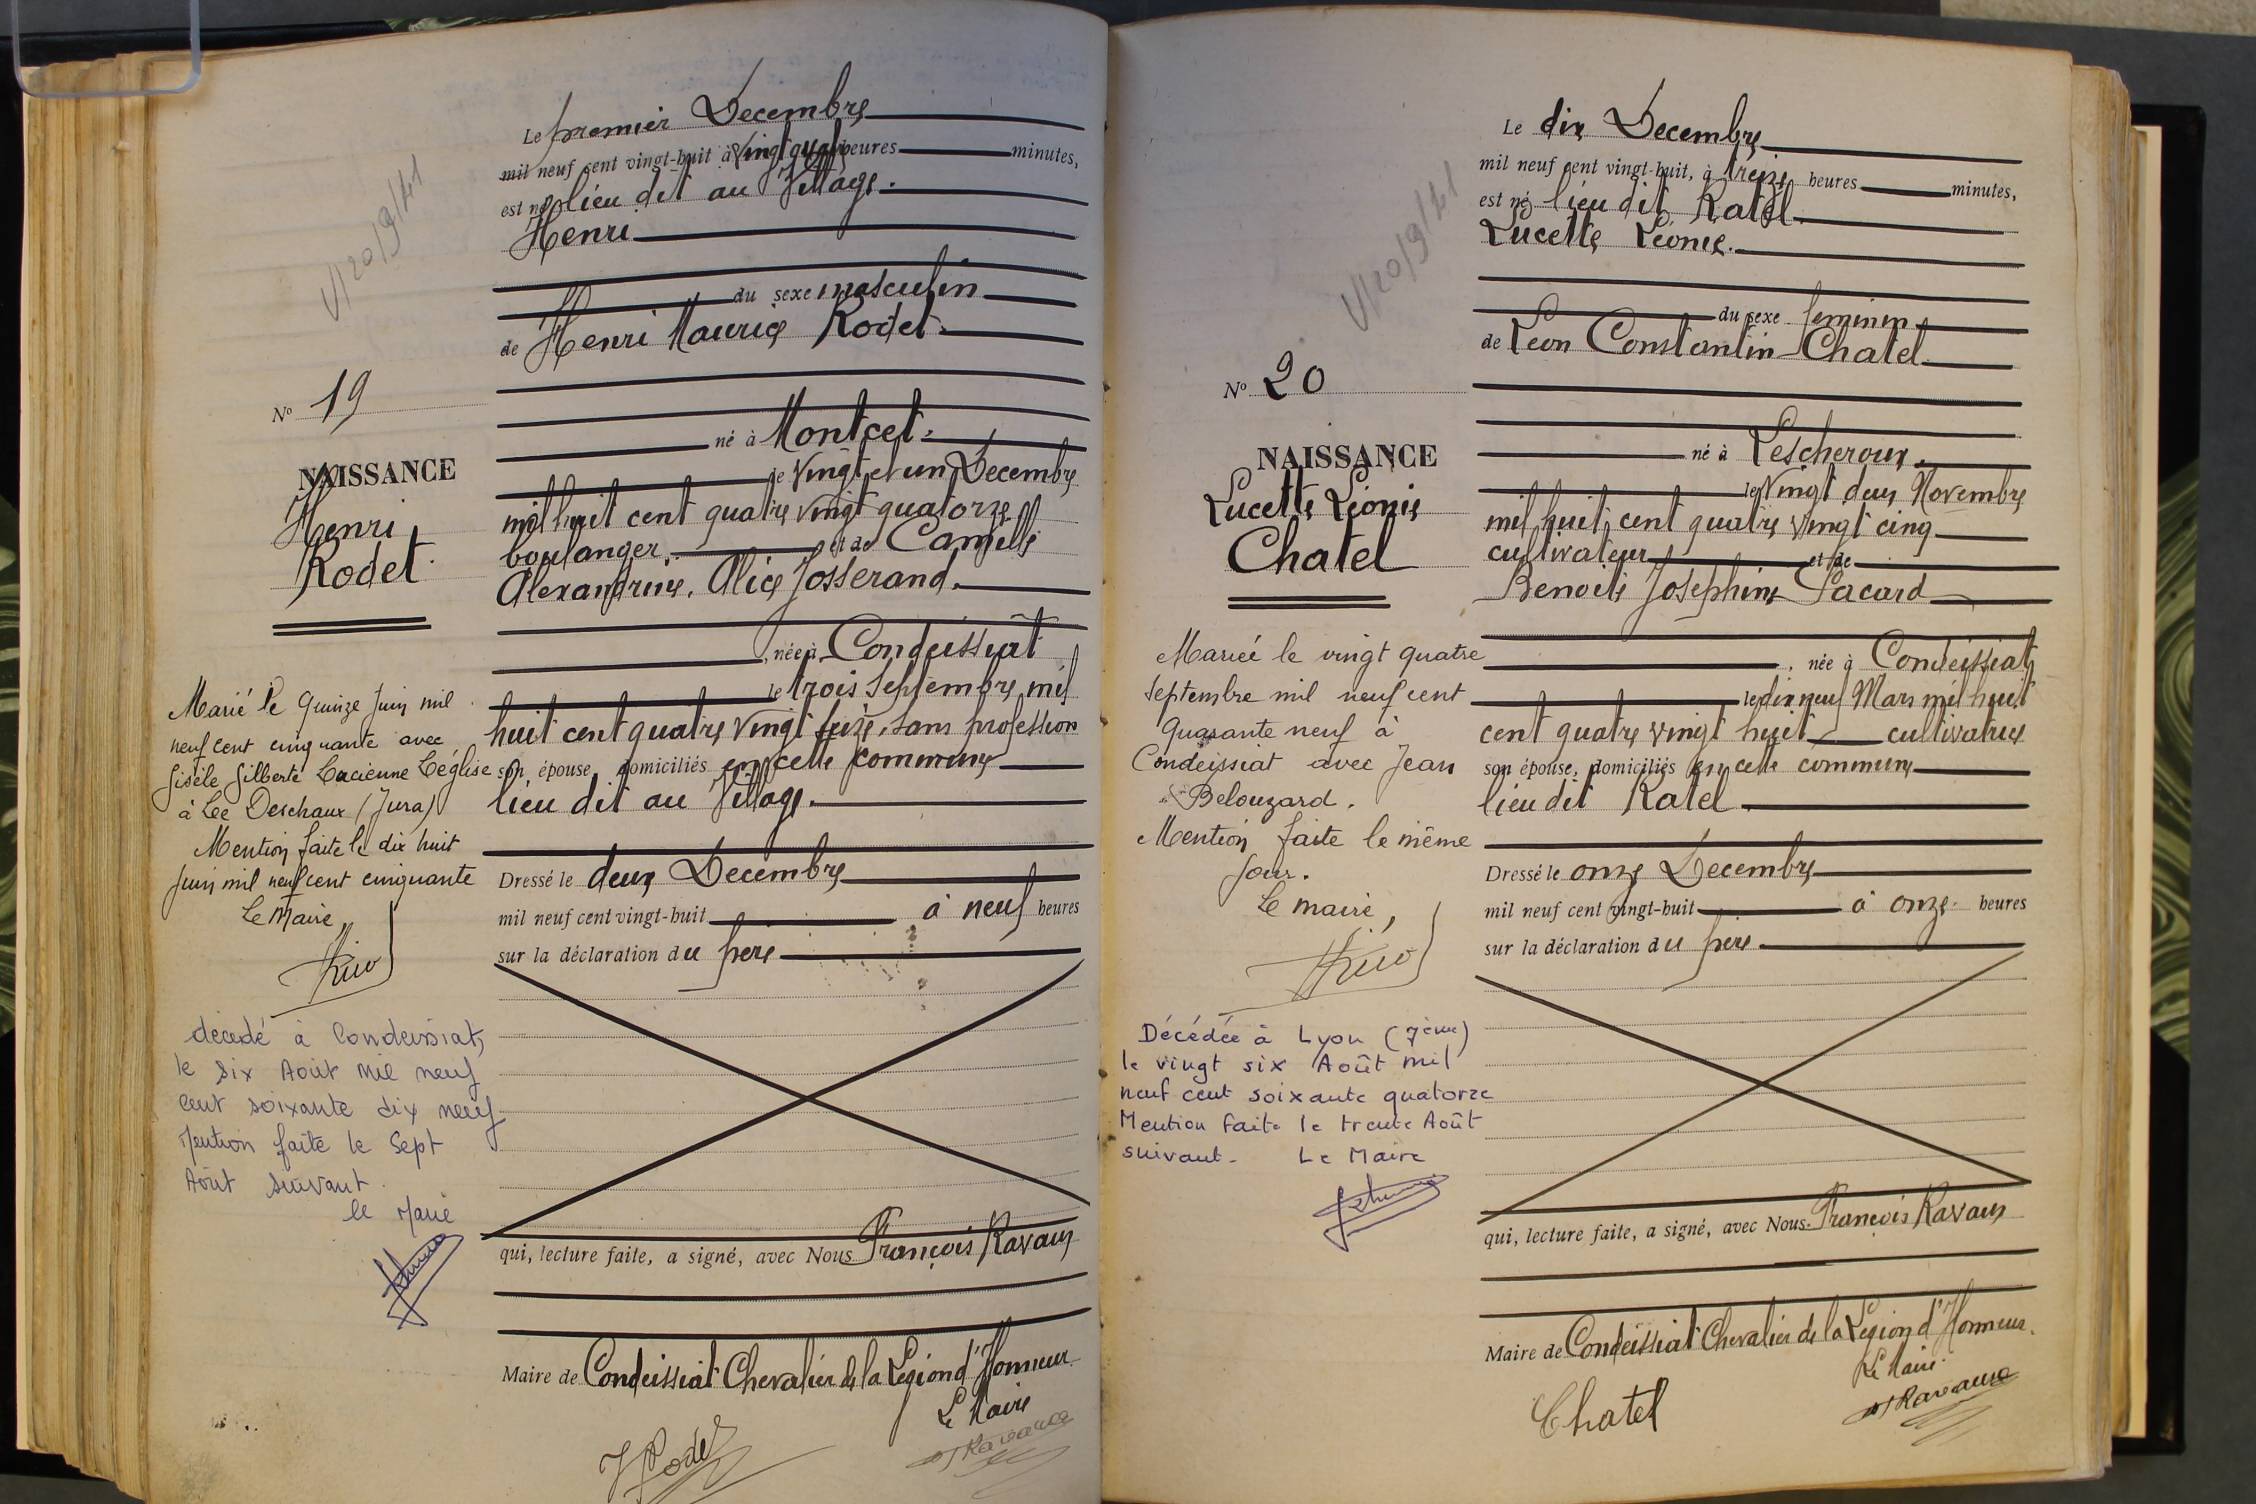 Le premier Decembre
mil neuf cent vingt-huit à vingt quatre heures minutes,
est né lieu dit au Village.
Henri
du sexe masculin
de Henri Maurice Rodet.
V/20/9/41
N° 19
né à Montcet.
NAISSANCE
Henri
Rodet
le vingt et un Decembre
mil huit cent quatre vingt quatorze
boulanger. et de Camille
Alexandrine, Alice Josserand.
, née à Condeissiat
le trois Septembre mil
huit cent quatre vingt seize, sans profession
son épouse, domiciliés en cette commune
lieu dit au Village.
Marié le quinze Juin mil
neuf cent cinquante avec
Gisèle Gilberte Lucienne Léglise
à Le Deschaux (Jura)
Mention faite le dix huit
Juin mil neuf cent cinquante
Le Maire,
Dressé le deux Decembre
mil neuf cent vingt-huit à neuf heures
sur la déclaration du père
décédé à Condeissiat,
le six Août mil neuf
cent soixante dix neuf
Mention faite le sept
Août suivant.
le Maire
qui, lecture faite, a signé, avec Nous François Ravaux
Maire de Condeissiat Chevalier de la Légion d'Honneur.
Le Maire
H Rodet
Le dix Decembre
mil neuf cent vingt-huit, à treize heures minutes,
est né lieu dit Ratel.
Lucette Léonie.
du sexe feminin
de Léon Constantin Chatel
V/20/9/41
N° 20
né à Lescheroux.
NAISSANCE
Lucette Léonie
Chatel
le vingt deux Novembre
mil huit cent quatre vingt cinq
cultivateur et de
Benoite Josephine Pacard
, née à Condeissiat
le dix neuf Mars mil huit
cent quatre vingt huit cultivatrice
son épouse, domiciliés en cette commune
lieu dit Ratel.
Mariée le vingt quatre
Septembre mil neuf cent
quarante neuf à
Condeissiat avec Jean
Belouzard.
Mention faite le même
jour.
Le maire,
Dressé le onze Decembre
mil neuf cent vingt-huit à onze heures
sur la déclaration du père
Décédée à Lyon (7ème)
le vingt six Août mil
neuf cent soixante quatorze
Mention faite le trente Août
suivant. Le Maire
qui, lecture faite, a signé, avec Nous François Ravaux
Maire de Condeissiat Chevalier de la Légion d'Honneur.
Le Maire
Chatel